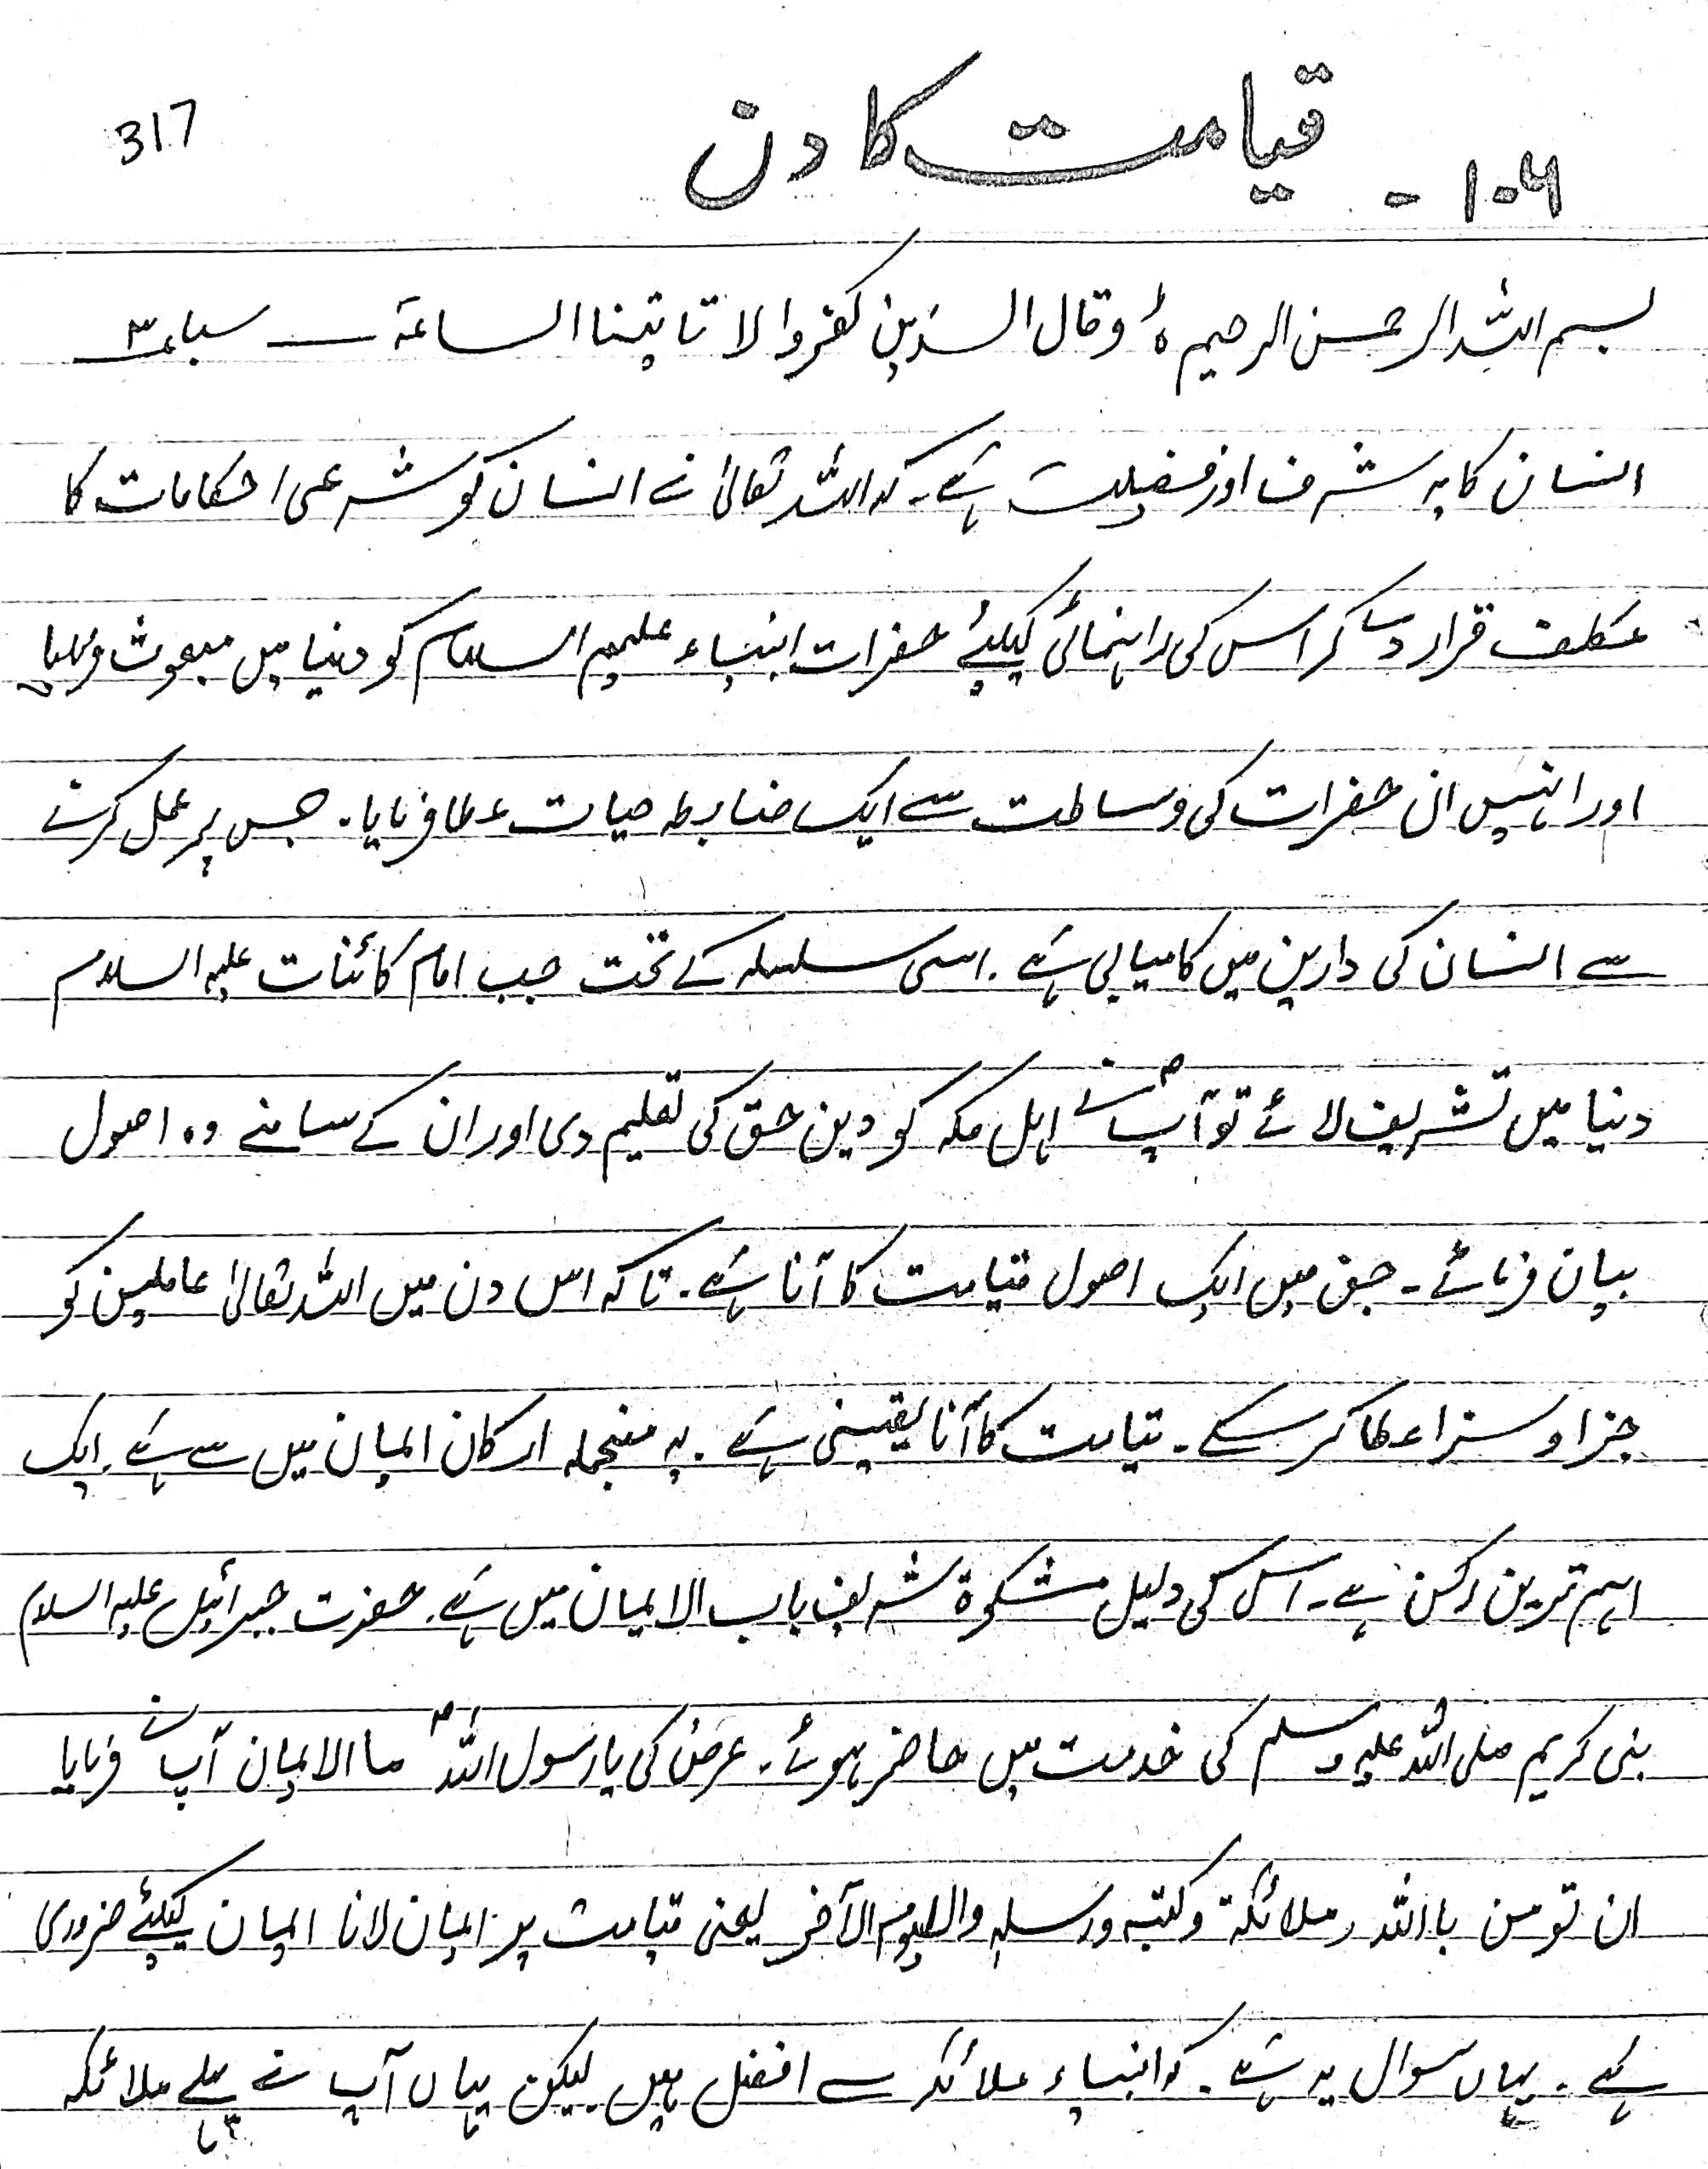 317
۱۰۶- قیامت کا دن
بسم اللہ الرحمن الرحیم ہ وقال الذین کفروا لا تاتینا الساعۃ — سبا ۳
انسان کا یہ شرف اور فضیلت ہے۔ کہ اللہ تعالیٰ نے انسان کو شرعی احکامات کا
مکلف قرار دے کر اس کی راہنمائی کیلئے حضرات انبیاء علیہم السلام کو دنیا میں مبعوث فرمایا
اور انہیں ان حضرات کی وساطت سے ایک ضابطہ حیات عطا فرمایا۔ جس پر عمل کرنے
سے انسان کی دارین میں کامیابی ہے۔ اسی سلسلہ کے تحت جب امام کائنات علیہ السلام
دنیا میں تشریف لائے تو آپؐ نے اہل مکہ کو دین حق کی تعلیم دی اور ان کے سامنے وہ اصول
بیان فرمائے۔ جن میں ایک اصول قیامت کا آنا ہے۔ تاکہ اس دن میں اللہ تعالیٰ عاملین کو
جزا و سزا عطا کر سکے۔ قیامت کا آنا یقینی ہے۔ یہ منجملہ ارکان ایمان میں سے ہے۔ ایک
اہم ترین رکن ہے۔ اس کی دلیل مشکوۃ شریف باب الایمان میں ہے۔ حضرت جبرائیل علیہ السلام
نبی کریم صلی اللہ علیہ وسلم کی خدمت میں حاضر ہوئے۔ عرض کی یا رسول اللہؐ ما الایمان آپ نے فرمایا
ان تومن باللہ وملائکۃ وکتبہ ورسلہ والیوم الآخر یعنی قیامت پر ایمان لانا ایمان کیلئے ضروری
ہے۔ یہاں سوال یہ ہے۔ کہ انبیاء ملائکہ سے افضل ہیں لیکن یہاں آپ نے پہلے ملائکہ